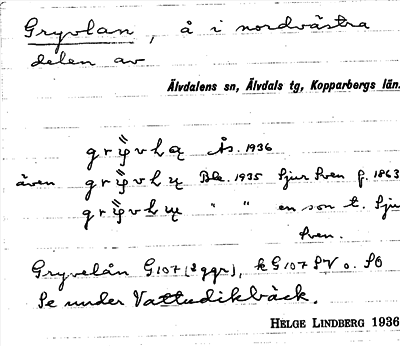 Gryvlan, å i nordvästra
delen av
Älvdalens sn, Älvdals tg, Kopparbergs län.
Ås. 1936
även Blę. 1935 Sjur Sven f. 1863
" " en son t. Sju
Sven.
Gryvelån G107 (2 ggr), k G107 SV o. SÖ
Se under Vattudikbäck.
HELGE LINDBERG 1936